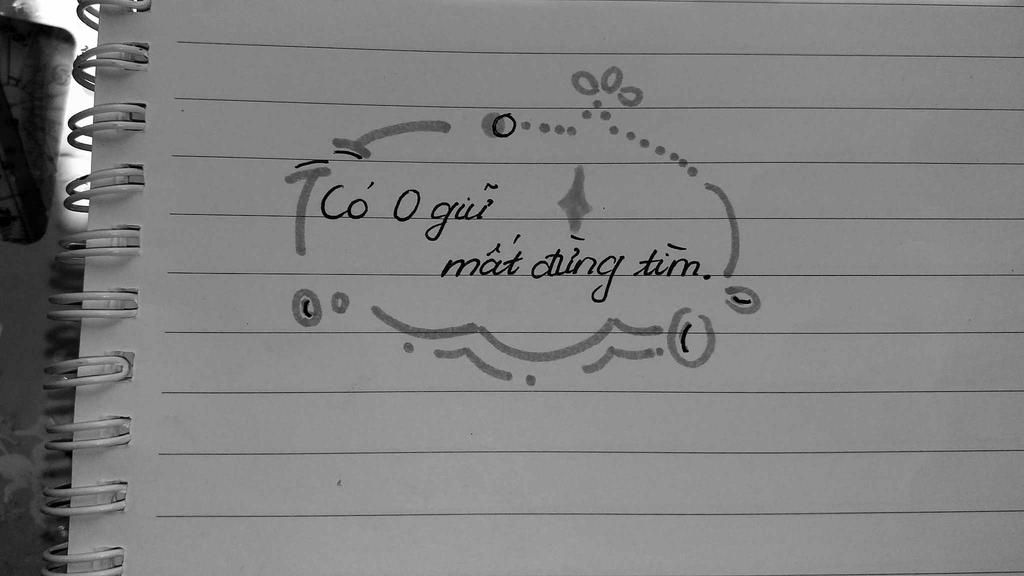 Có 0 giữ
mất đừng tìm.